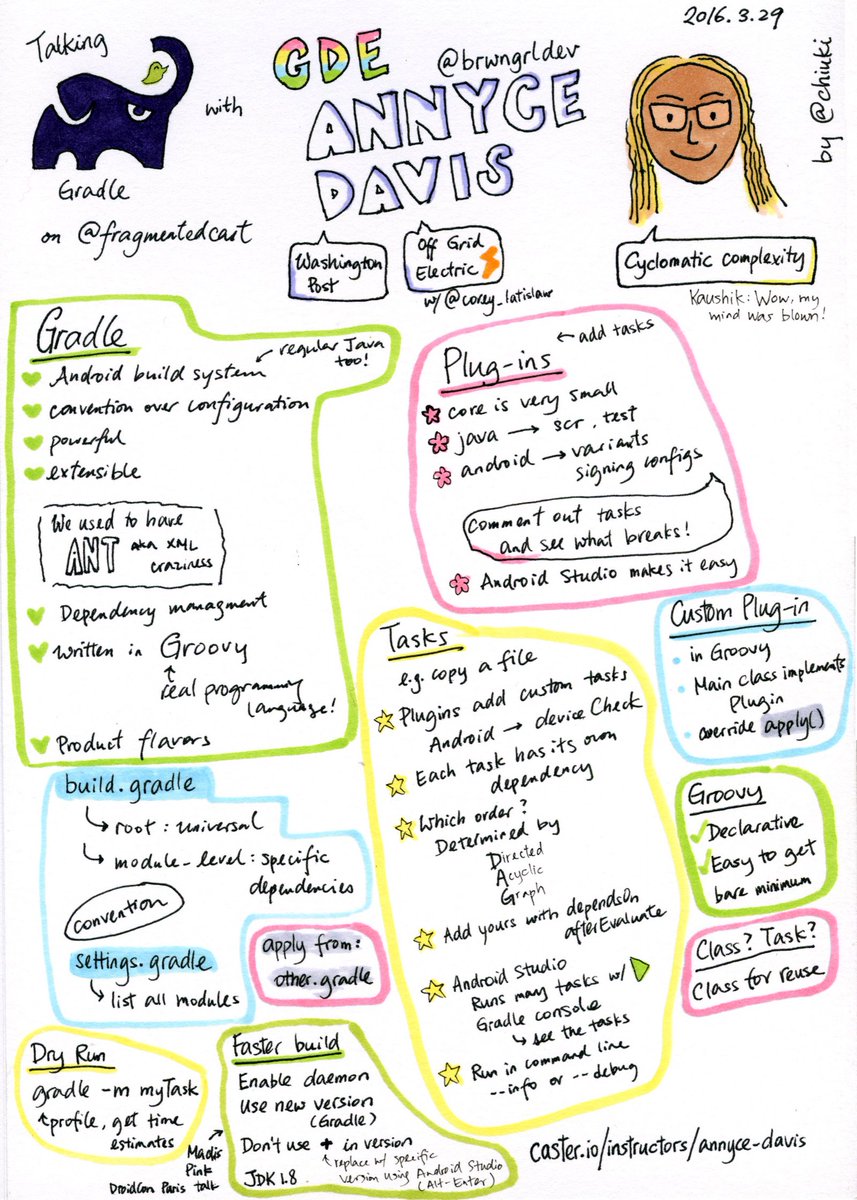 2016.3.29
by @chiuki
Talking
with
Gradle
on @fragmentedcast
GDE
@brwngrldev
ANNYCE
DAVIS
Washington
Post
Off Grid
Electric
w/ @corey_latislaw
Cyclomatic complexity
Kaushik: Wow, my
mind was blown!
Gradle
regular Java
too!
Android build system
convention over configuration
powerful
extensible
We used to have
ANT aka XML
craziness
Dependency managment
Written in Groovy
real programming
language!
Product flavors
Plug-ins
← add tasks
core is very small
java → scr, test
android → variants
signing configs
comment out tasks
and see what breaks!
Android Studio makes it easy
Tasks
e.g. copy a file
Plugins add custom tasks
Android → deviceCheck
Each task has its own
dependency
Which order?
Determined by
Directed
Acyclic
Graph
Add yours with dependsOn
afterEvaluate
Android Studio
Runs many tasks w/
Gradle console
see the tasks
Run in command line
--info or --debug
Custom Plug-in
in Groovy
Main class implements
Plugin
override apply()
Groovy
Declarative
Easy to get
bare minimum
Class? Task?
Class for reuse
build.gradle
root: universal
module-level: specific
dependencies
convention
settings.gradle
list all modules
apply from:
other.gradle
Dry Run
gradle -m myTask
profile, get time
estimates
Madis
Pink
Droidcon Paris talk
Faster build
Enable daemon
Use new version
(Gradle)
Don't use + in version
replace w/ specific
version using Android Studio
(Alt-Enter)
JDK 1.8
caster.io/instructors/annyce-davis